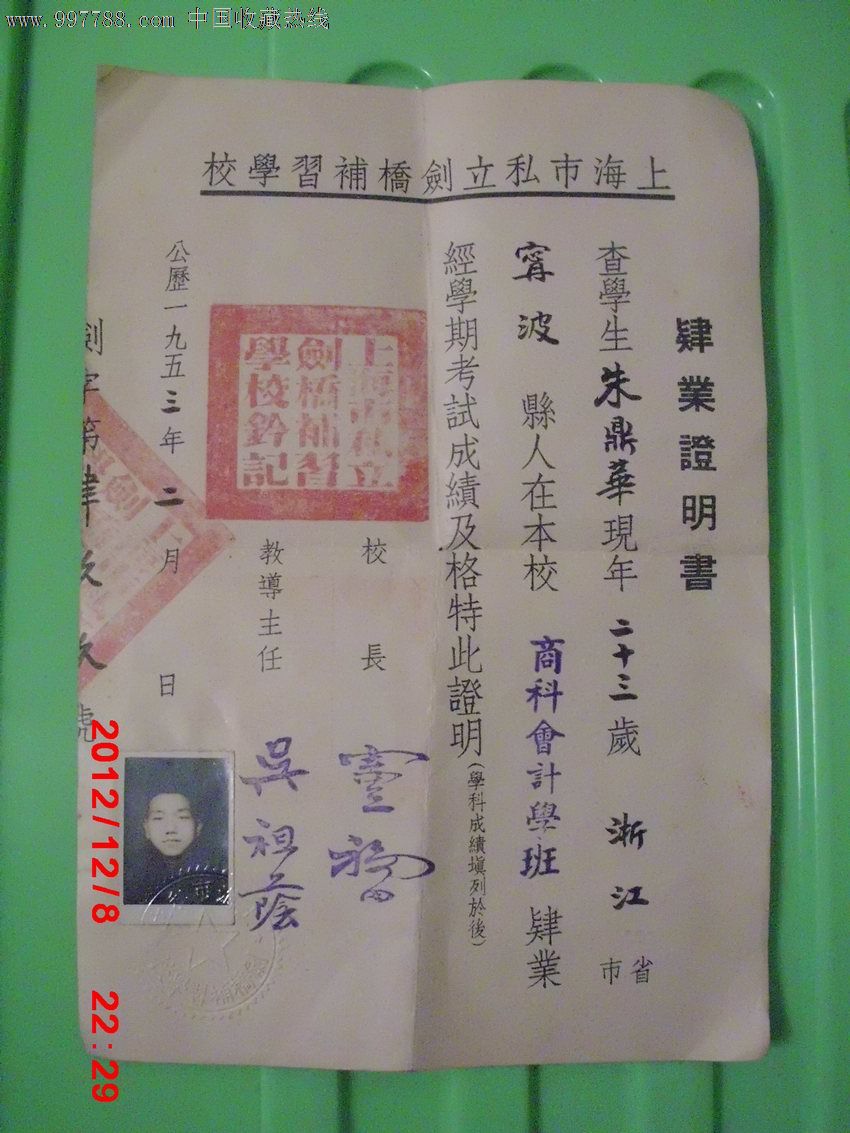 www.997788.com 中国收藏热线
上海市私立劍橋補習學校
肄業證明書
查學生朱鼎華現年二十三歲浙江省市
甯波縣人在本校商科會計學班肄業
經學期考試成績及格特此證明(學科成績填列於後)
校長
教導主任吳祖蔭
上海市私立
劍橋補習
學校鈐記
公歷一九五三年二月 日
劍字第肆玖玖號
2012/12/8 22:29